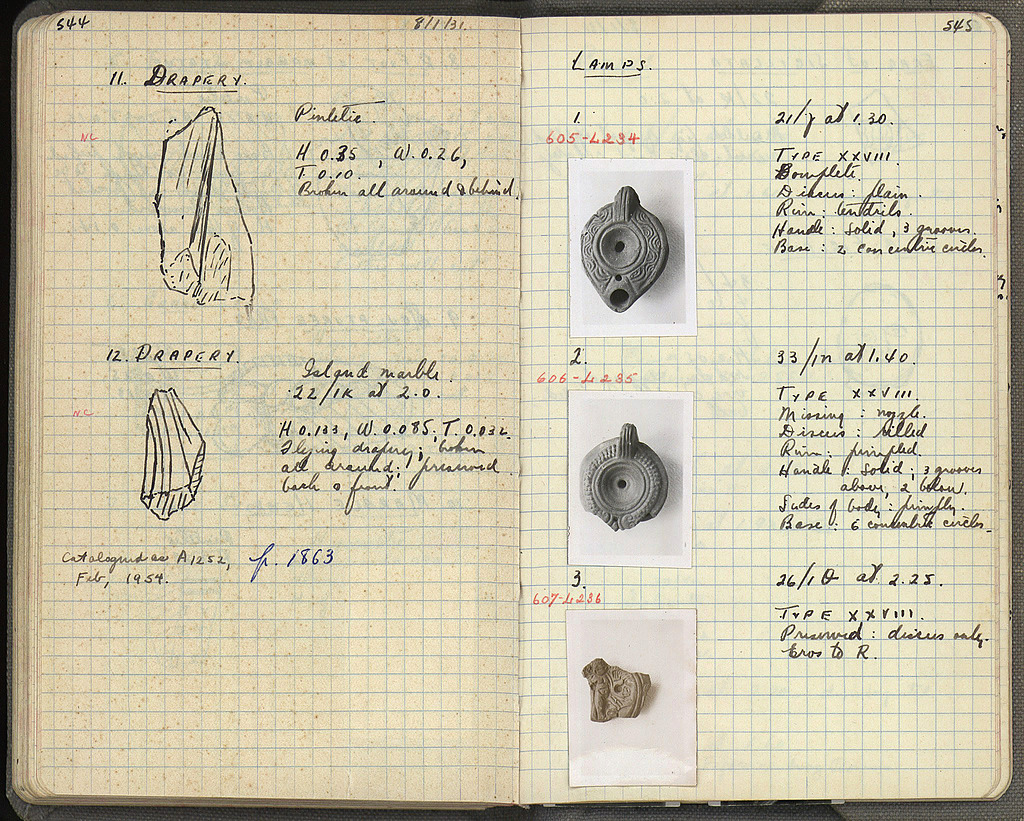 544
8/1/31.
11. DRAPERY.
NC
Pentelic.
H 0.35, W. 0.26,
T. 0.10.
Broken all around & behind.
12. DRAPERY.
NC
Island marble.
22/ΙΚ at 2.0.
H 0.133, W. 0.085, T. 0.032.
Flying drapery; broken
all around; preserved
back & front.
Catalogued as A1252,
Feb, 1954.
p. 1863
545
LAMPS.
1.
605-L234
21/γ at 1.30.
TYPE XXVIII.
Complete.
Discus: plain.
Rim: tendrils.
Handle: solid, 3 grooves.
Base: 2 concentric circles.
2.
606-L235
33/ at 1.40.
TYPE XXVIII.
Missing: nozzle.
Discus: rilled
Rim: pimpled.
Handle: solid; 3 grooves
above, 2 below.
Sides of body: pimply.
Base: 6 concentric circles.
3.
607-L236
26/ΙΘ at 2.25.
TYPE XXVIII.
Preserved: discus only.
Eros to R.